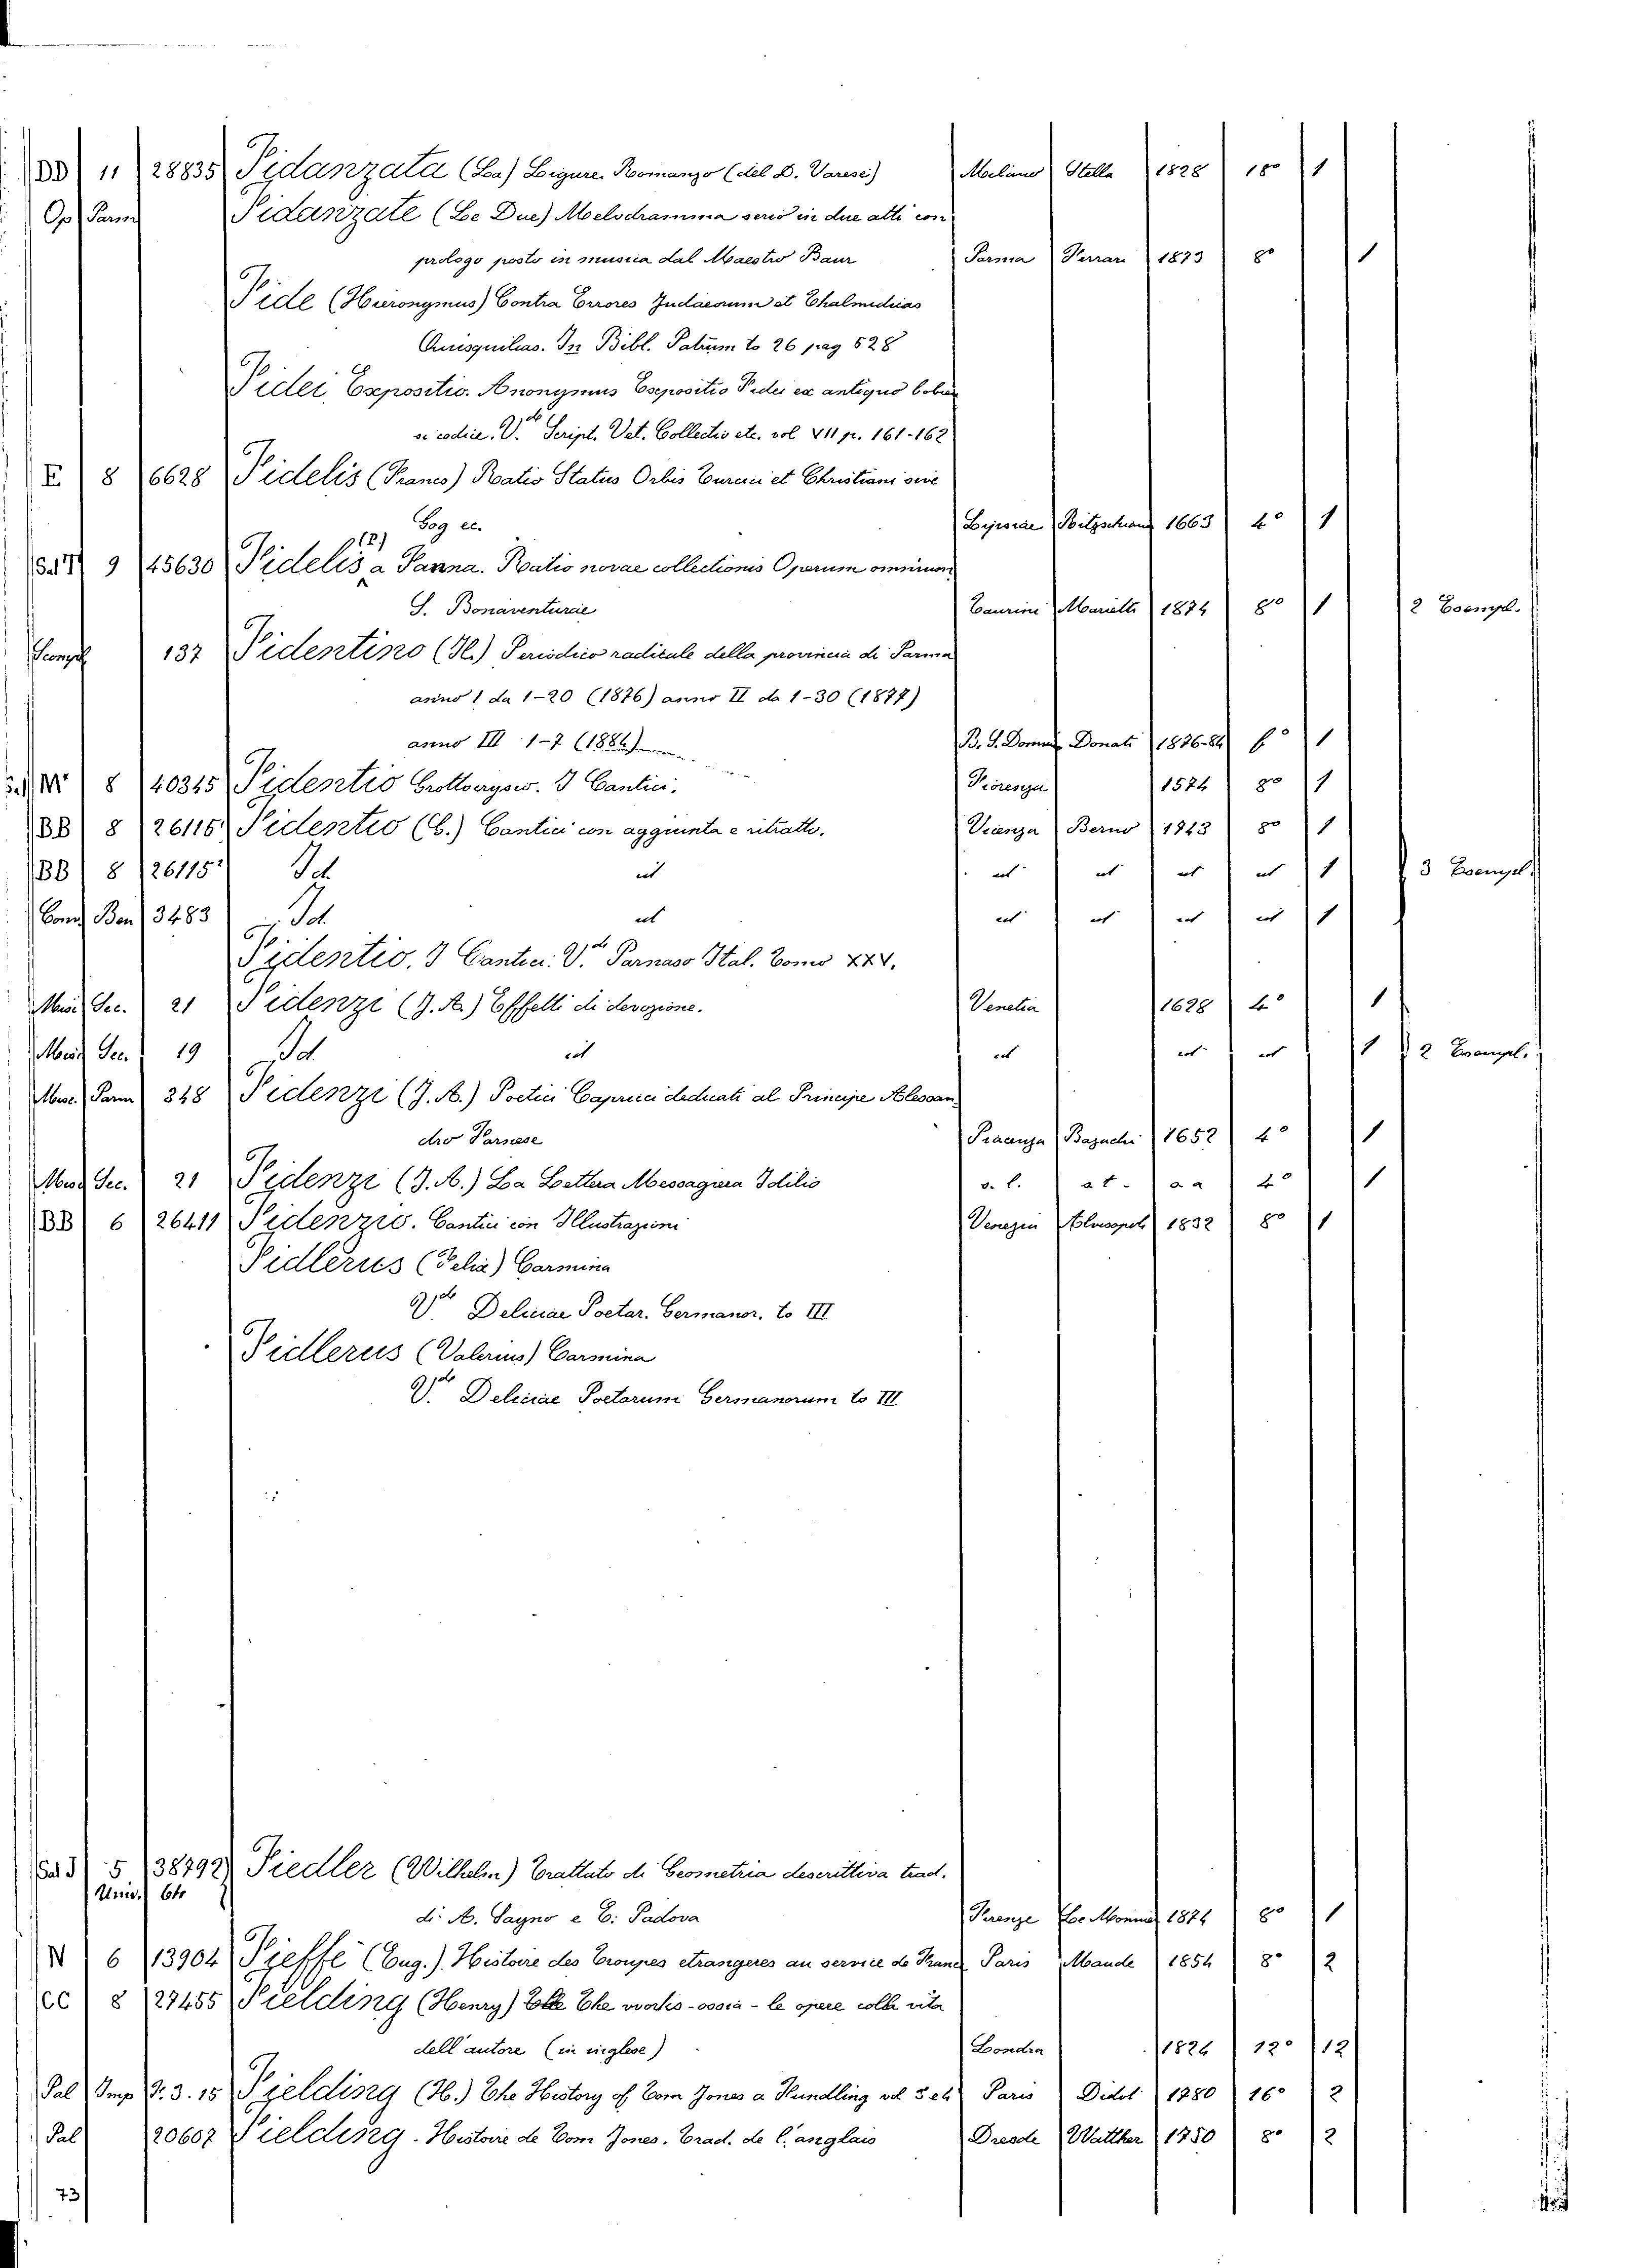 DD 11 28835 Fidanzata (La) Ligure. Romanzo (del D. Varese) Milano Stella 1828 18° 1
Op. Parm Fidanzate (Le Due) Melodramma serio in due atti con
prologo posto in musica dal Maestro Baur Parma Ferrari 1873 8° 1
Fide (Hieronymus) Contra Errores Judaeorum et Thalmudicas
Quisquilias. In Bibl. Patrum to 26 pag 528
Fidei, Expositio. Anonymus Expositio Fidei ex antiquo bobien
si codice. V.do Script. Vet. Collectio etc. vol VII p. 161-162
E 8 6628 Fidelis (Franco) Ratio Status Orbis Europaei et Christiani sive
Gog ec. Lipsiae 1663 4° 1
Sal T 9 45630 Fidelis (P.) a Fanna. Ratio novae collectionis Operum omnium
S. Bonaventurae Taurini Marietti 1874 8° 1 2 Esempl.
137 Fidentino (Il) Periodico radicale della provincia di Parma
anno 1 da 1-20 (1876) anno II da 1-30 (1877)
anno III 1-7 (1884) B. S. Donnino Donati 1876-84 f° 1
8 40345 Fidentio Grottocrysio. I Cantici. Fiorenza 1574 8° 1
BB 8 26115 Fidentio (C.) Cantici con aggiunta e ritratto. Vicenza Berno 1743 8° 1
BB 8 26115² Id. ut ut ut ut ut 1 3 Esempl.
Conv. Ben 3483 Id. ut ut ut ut ut 1
Fidentio. I Cantici. V.do Parnaso Ital. Tomo XXV.
Misc. Sec. 21 Fidenzi (J. A.) Effetti di devozione. Venetia 1628 4° 1
Misc. Sec. 19 Id. ut ut ut ut 1 2 Esempl.
Misc. Parm 348 Fidenzi (J. A.) Poetici Capricci dedicati al Principe Alessan
dro Farnese Piacenza Bazachi 1652 4° 1
Misc. Sec. 21 Fidenzi (J. A.) La Lettera Messagiera Idilio s. l. a t. a a 4° 1
BB 6 26411 Fidenzio. Cantici con Illustrazioni Venezia Alvisopoli 1832 8° 1
Fidlerus (Felix) Carmina
V.do Deliciae Poetar. Germanor. to III
Fidlerus (Valerius) Carmina
V.do Deliciae Poetarum Germanorum to III
Sal J 5 38792 Fiedler (Wilhelm) Trattato di Geometria descrittiva trad.
Univ.
di A. Sayno e E: Padova Firenze Le Monnier 1874 8° 1
N 6 13904 Fieffé (Eug.) Histoire des Troupes etrangeres au service de Franc Paris 1854 8° 2
CC 8 27455 Fielding (Henry) The works - ossia - le opere colla vita
dell'autore (in inglese) Londra 1824 12° 12
Pal Imp P. 3. 15 Fielding (H.) The History of Tom Jones a Fundling vol 3 e 4 Paris Didot 1780 16° 2
Pal 20607 Fielding - Histoire de Tom Jones. Trad. de l'anglais Dresde Walther 1750 8° 2
73